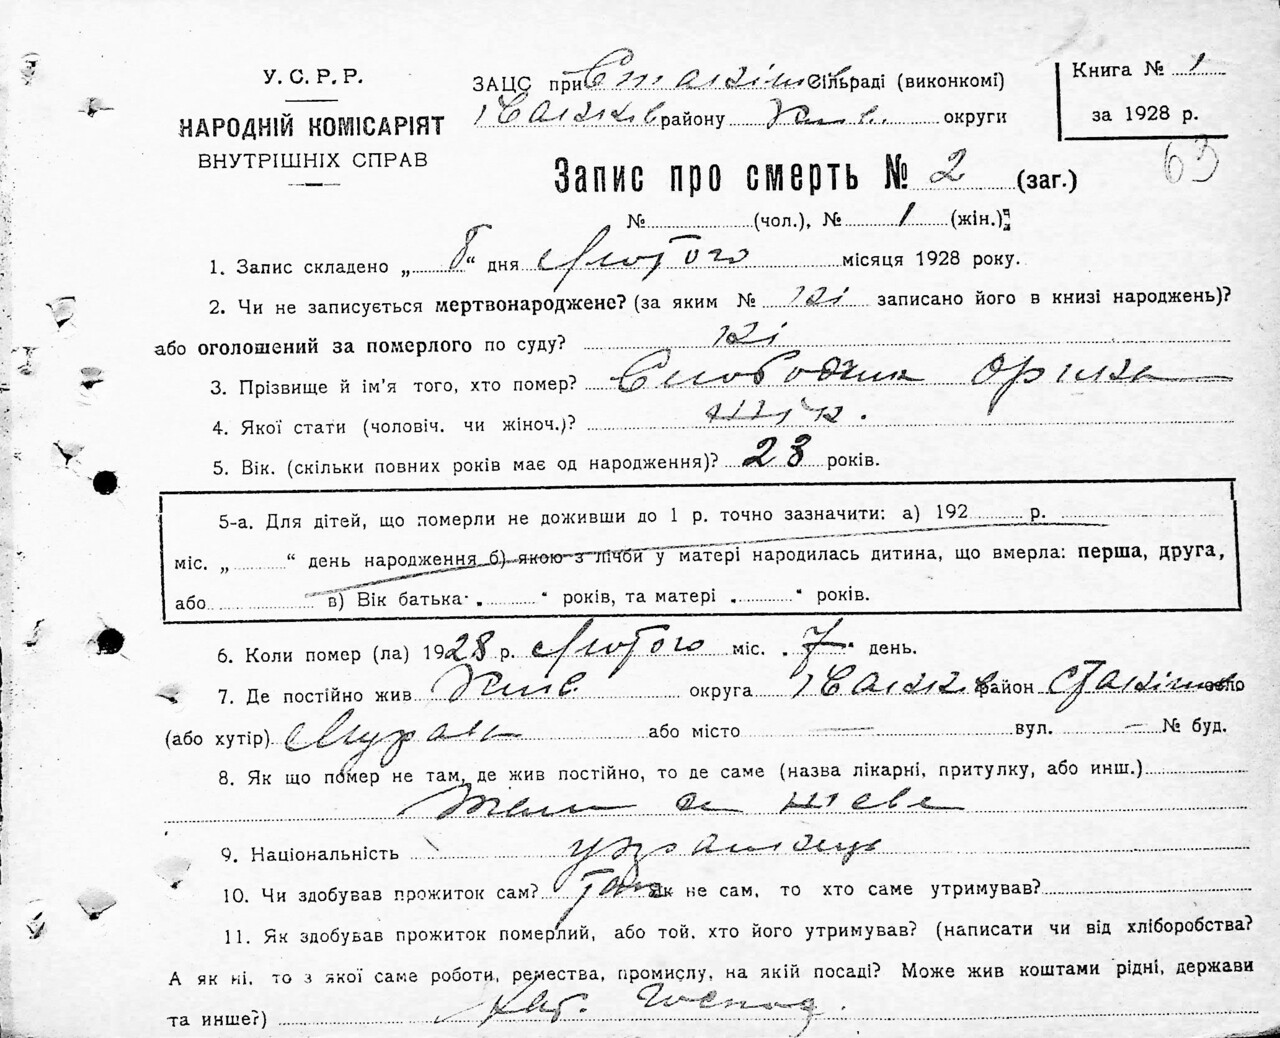 У. С. Р. Р.
НАРОДНІЙ КОМІСАРІЯТ
ВНУТРІШНІХ СПРАВ
ЗАЦС при сільраді (виконкомі)
району Київ. округи
Книга № 1
за 1928 р.
63
Запис про смерть № 2 (заг.)
№ (чол.), № 1 (жін.)
1. Запис складено „ " дня Лютого місяця 1928 року.
2. Чи не записується мертвонароджене? (за яким № ні записано його в книзі народжень)?
або оголошений за померлого по суду? ні
3. Прізвище й ім'я того, хто помер? Слободяник Орина
4. Якої стати (чоловіч. чи жіноч.)?
5. Вік. (скільки повних років має од народження)? 23 років.
5-а. Для дітей, що померли не доживши до 1 р. точно зазначити: а) 192 р.
міс. „ " день народження б) якою з лічби у матері народилась дитина, що вмерла: перша, друга,
або в) Вік батька „ " років, та матері „ " років.
6. Коли помер (ла) 1928 р. Лютого міс. „7" день.
7. Де постійно жив Київ округа район село
(або хутір) або місто — вул. — № буд.
8. Як що помер не там, де жив постійно, то де саме (назва лікарні, притулку, або инш.)
9. Національність українець
10. Чи здобував прожиток сам? так Як не сам, то хто саме утримував?
11. Як здобував прожиток померлий, або той, хто його утримував? (написати чи від хліборобства?
А як ні, то з якої саме роботи, ремества, промислу, на якій посаді? Може жив коштами рідні, держави
та инше?) Хліб. господ.